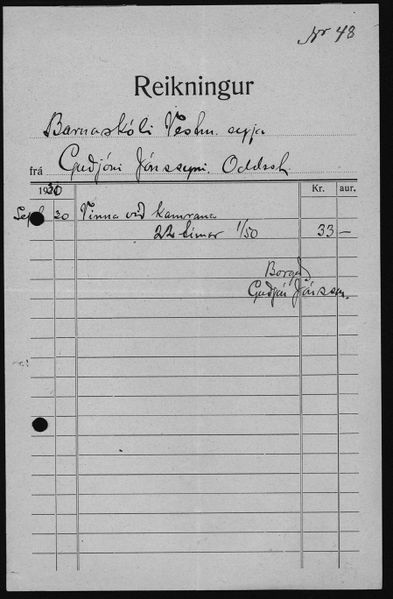 Nr 48
Reikningur
Barnaskóli Vestm. eyja
frá Gudjóni Jónssyni. Oddsst
1930 Kr. aur.
Sept 20 Vinna við kamrana
22 tímar 1/50 33 —
Borgað
Gudjón Jónsson.